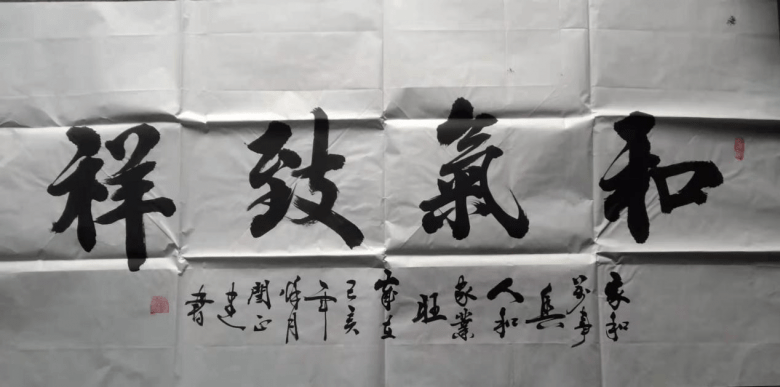 和氣致祥
家和
萬事
興
人和
家業
旺
歲在
己亥
年
月
閆正
建
書